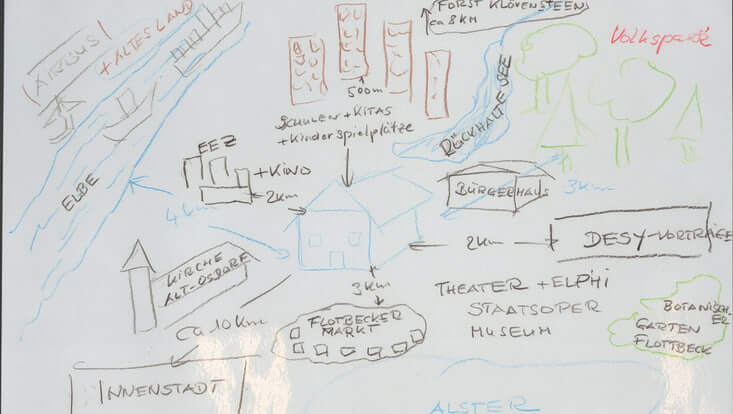 AIRBUS
+ ALTES LAND
FORST KLÖVENSTEEN
ca 8 KM
Volkspark
500m
SCHULEN + KITAS
+ Kinderspielplätze
RÜCKHALTESEE
EEZ
+ KINO
2km
ELBE
4 km
BÜRGERHAUS
3km
2km
DESY-VORTRÄGE
KIRCHE
ALT-OSDORF
3km
ca 10 km
FLOTBECKER
MARKT
THEATER + ELPHI
STAATSOPER
MUSEUM
BOTANISCH-
ER
GARTEN
FLOTTBECK
INNENSTADT
ALSTER